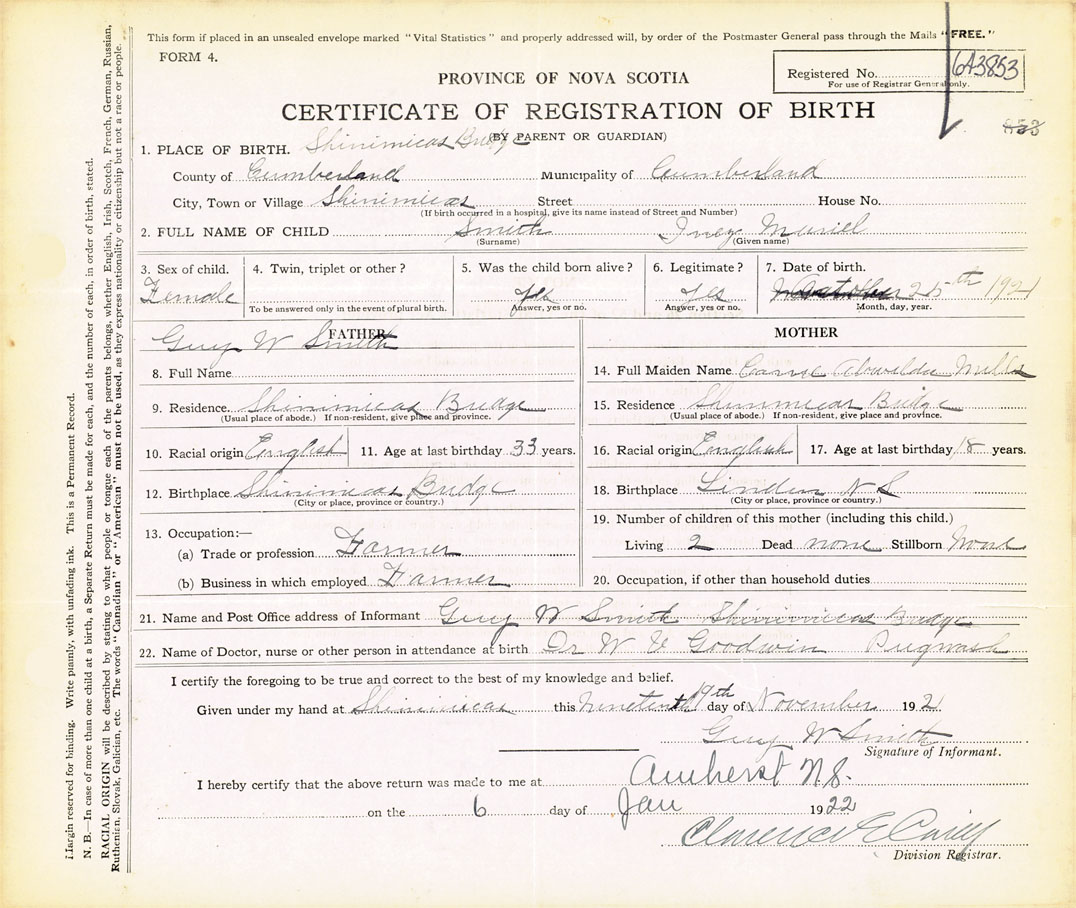 This form if placed in an unsealed envelope marked "Vital Statistics" and properly addressed will, by order of the Postmaster General pass through the Mails "FREE."
FORM 4.
PROVINCE OF NOVA SCOTIA
Registered No. 6A3853
For use of Registrar General only.
CERTIFICATE OF REGISTRATION OF BIRTH
853
(BY PARENT OR GUARDIAN)
1. PLACE OF BIRTH. Shinimicas Bridge
County of Cumberland Municipality of Cumberland
City, Town or Village Shinimicas Street House No.
(If birth occurred in a hospital, give its name instead of Street and Number)
2. FULL NAME OF CHILD Smith Inez Muriel
(Surname) (Given name)
3. Sex of child. 4. Twin, triplet or other? 5. Was the child born alive? 6. Legitimate? 7. Date of birth.
Female Yes Yes October 25th 1921
To be answered only in the event of plural birth. Answer, yes or no. Answer, yes or no. Month, day, year.
FATHER
Guy W Smith
8. Full Name
9. Residence Shinimicas Bridge
(Usual place of abode.) If non-resident, give place and province.
10. Racial origin English 11. Age at last birthday 33 years.
12. Birthplace Shinimicas Bridge
(City or place, province or country.)
13. Occupation:—
(a) Trade or profession Farmer
(b) Business in which employed Farmer
MOTHER
14. Full Maiden Name Mills
15. Residence Shinimicas Bridge
(Usual place of abode.) If non-resident, give place and province.
16. Racial origin English 17. Age at last birthday 18 years.
18. Birthplace Linden N S
(City or place, province or country.)
19. Number of children of this mother (including this child.)
Living 2 Dead none Stillborn None
20. Occupation, if other than household duties
21. Name and Post Office address of Informant Guy W Smith Shinimicas Bridge
22. Name of Doctor, nurse or other person in attendance at birth Dr W V Goodwin Pugwash
I certify the foregoing to be true and correct to the best of my knowledge and belief.
Given under my hand at Shinimicas this Nineteenth 19th day of November 1921.
Guy W Smith
Signature of Informant.
I hereby certify that the above return was made to me at Amherst N.S.
on the 6 day of Jan 1922
Clarence E Casey
Division Registrar.
Margin reserved for binding. Write plainly, with unfading ink. This is a Permanent Record.
N. B.—In case of more than one child at a birth, a Separate Return must be made for each, and the number of each, in order of birth, stated.
RACIAL ORIGIN will be described by stating to what people or tongue each of the parents belongs, whether English, Irish, Scotch, French, German, Russian,
Ruthenian, Slovak, Galician, etc. The words "Canadian" or "American" must not be used, as they express nationality or citizenship but not a race or people.